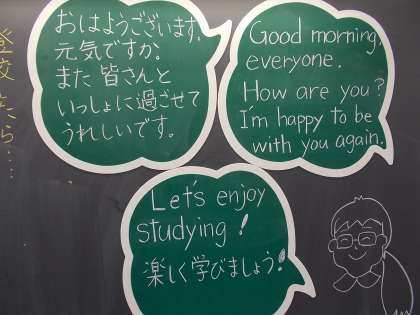 おはようございます。
元気ですか。
また 皆さんと
いっしょに過ごせて
うれしいです。
Good morning,
everyone.
How are you?
I'm happy to be
with you again.
Let's enjoy
studying!
楽しく学びましょう!
登校したら…